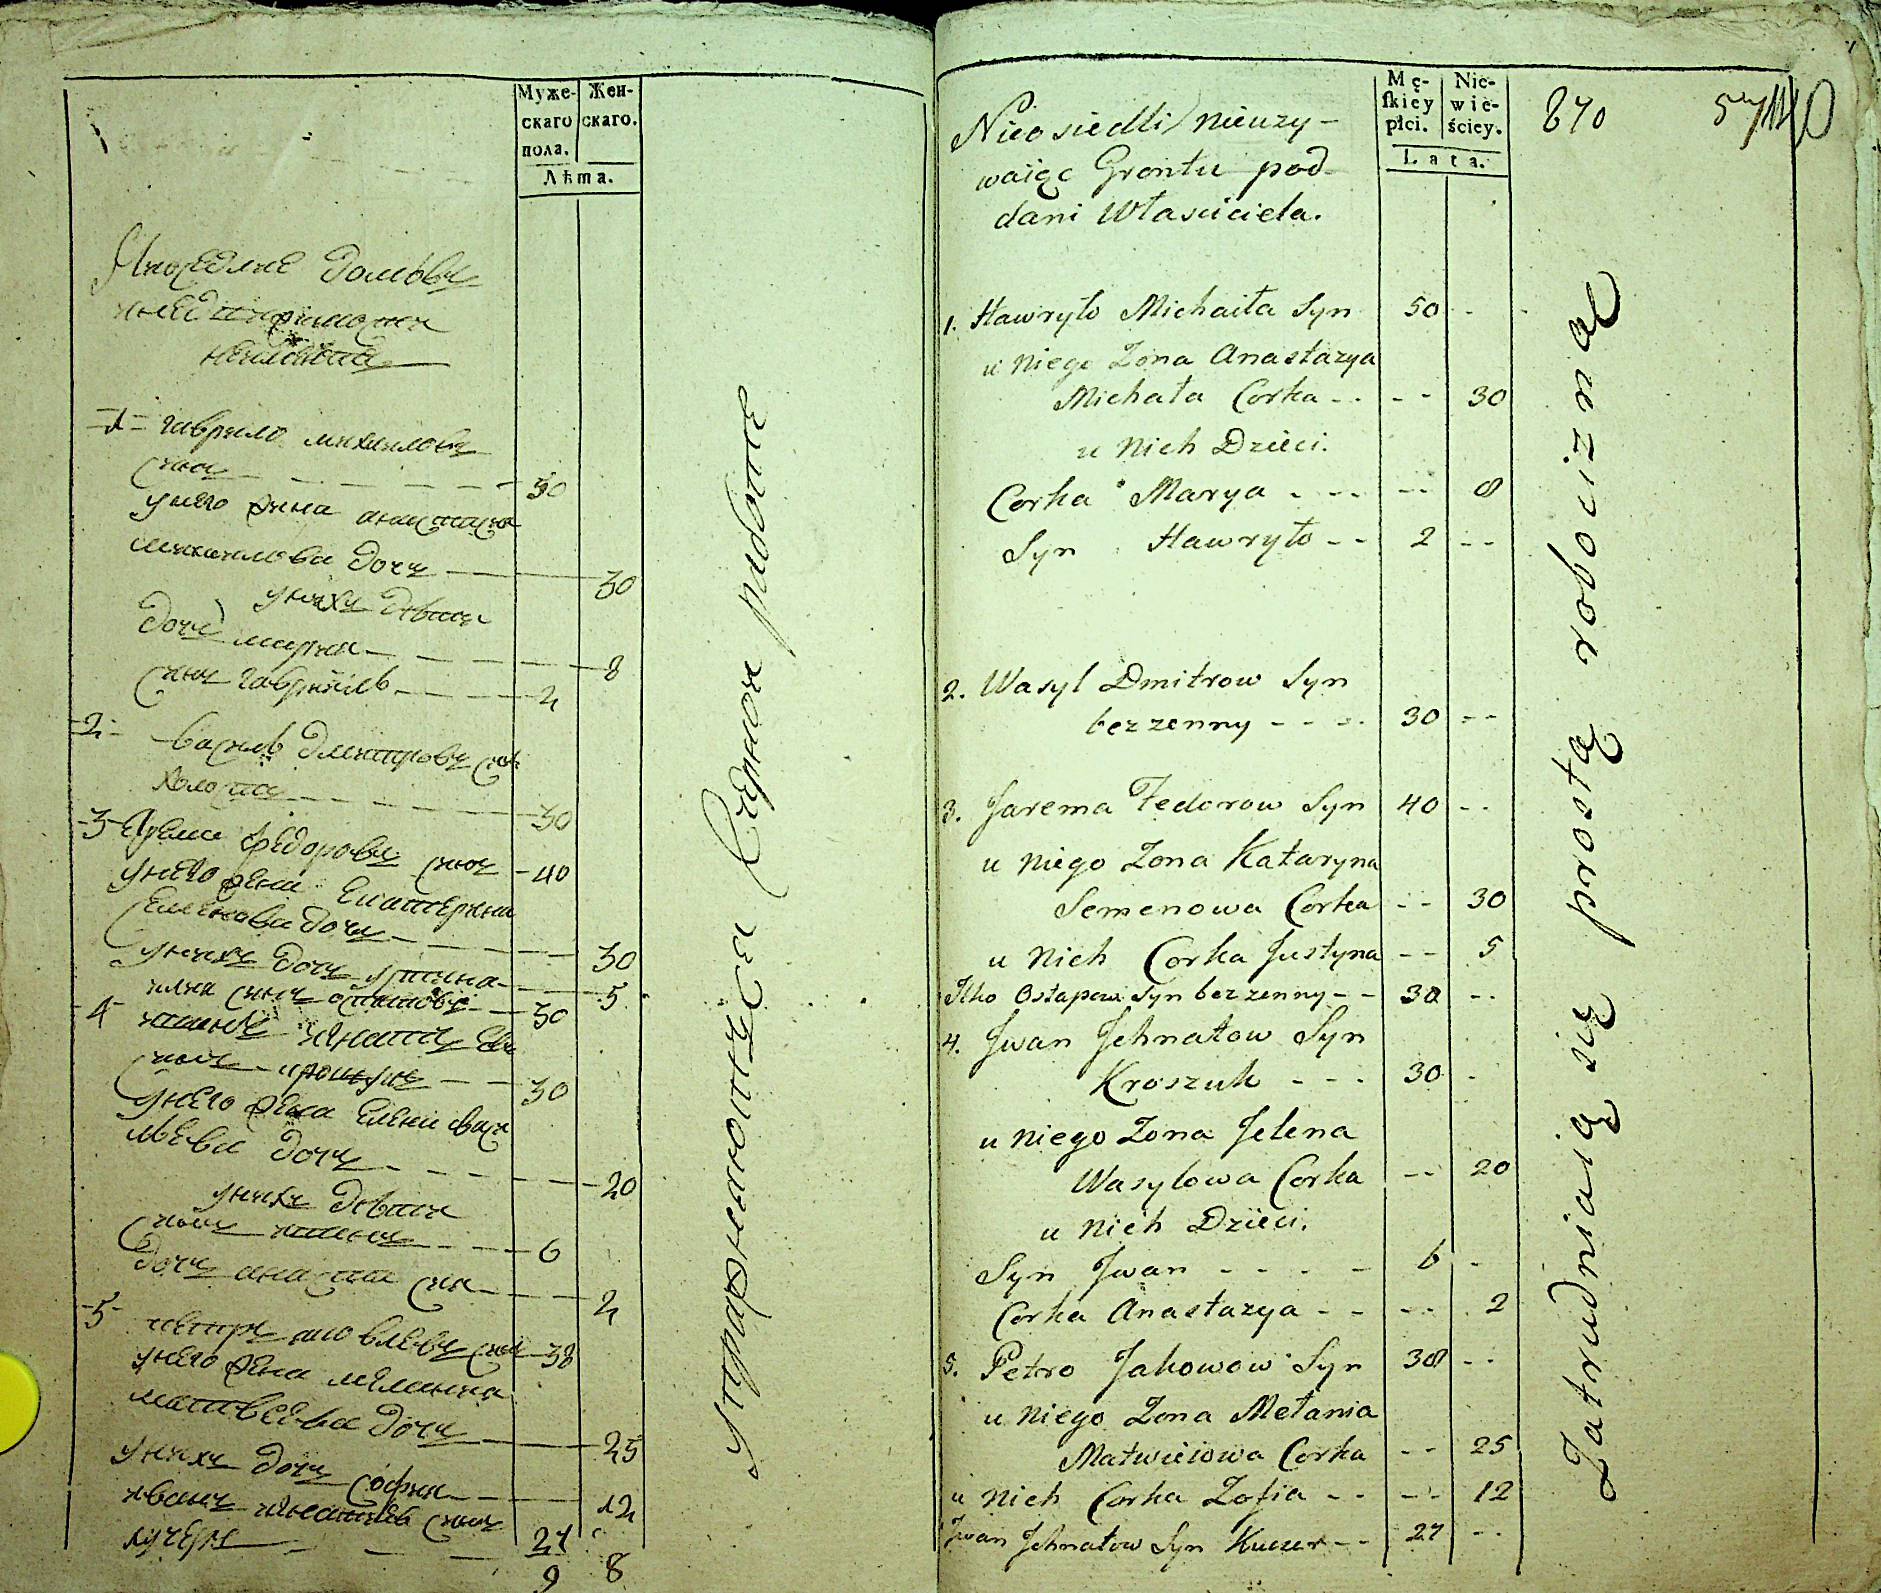 Муже-
скаго
пола.
Жен-
скаго.
Лѣта.
-1- гаврило михаиловъ
сынъ 50
у него жена анастасия
михаилова дочь 30
у нихъ дѣти
дочь мария 8
сынъ гавриилъ 2
-2- василь дмитровъ сынъ
холостъ 30
-3- Ярема федоровъ сынъ 40
у него жена Екатерина
Семенова дочь 30
у нихъ дочь Устина 5
илко сынъ остаповъ 30
-4-
30
у него жена Елена Васи
льева дочь 20
у нихъ дѣти
сынъ иванъ 6
дочь анастасия 2
-5- петръ яковлевъ сынъ 38
у него жена мелания
матвеева дочь 25
у нихъ дочь софия 12
иванъ игнатовъ сынъ
кучеръ 27
9 8
упражняются Чернои работе
Mę-
skiey
płci.
Nie-
wie-
ściey.
Lata.
870
Nieosiedli nieuzy-
waiąc Grontu pod-
dani Własciciela.
1. Hawryło Michaiła Syn 50 - -
u niego Zona Anastazya
Michała Corka - - - - 30
u nich Dzieci.
Corka Marya - - - - - 8
Syn Hawryło - - 2 - -
2. Wasyl Dmitrow Syn
bezzenny - - - - 30 - -
3. Jarema Fedorow Syn 40 - -
u niego Zona Kataryna
Semenowa Corka - - 30
u nich Corka Justyna - - 5
Ilko Ostapow Syn bezzenny - - 30 - -
4. Jwan Jehnatow Syn
Kroszuk - - - 30 -
u niego Zona Jelena
Wasylowa Corka - - 20
u nich Dzieci.
Syn Jwan - - - - 6 -
Corka Anastazya - - - - 2
5. Petro Jakowow Syn 38 - -
u niego Zona Melania
Matwieiowa Corka - - 25
u nich Corka Zofia - - - - 12
Jwan Jehnatow Syn Kuczer - - 27 - -
Zatrudniaią się prostą robocizną